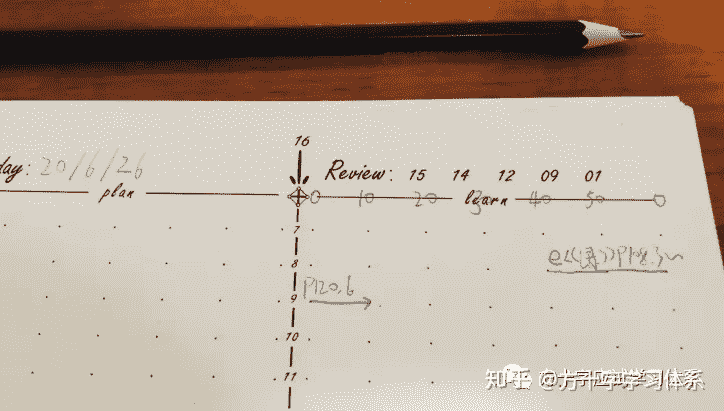 16
day: 20/6/26
Review: 15 14 12 09 01
plan
0 10 20 30 40 50 0
learn
7
8
9 P120.6
10
11
知乎 @方子应试学习体系